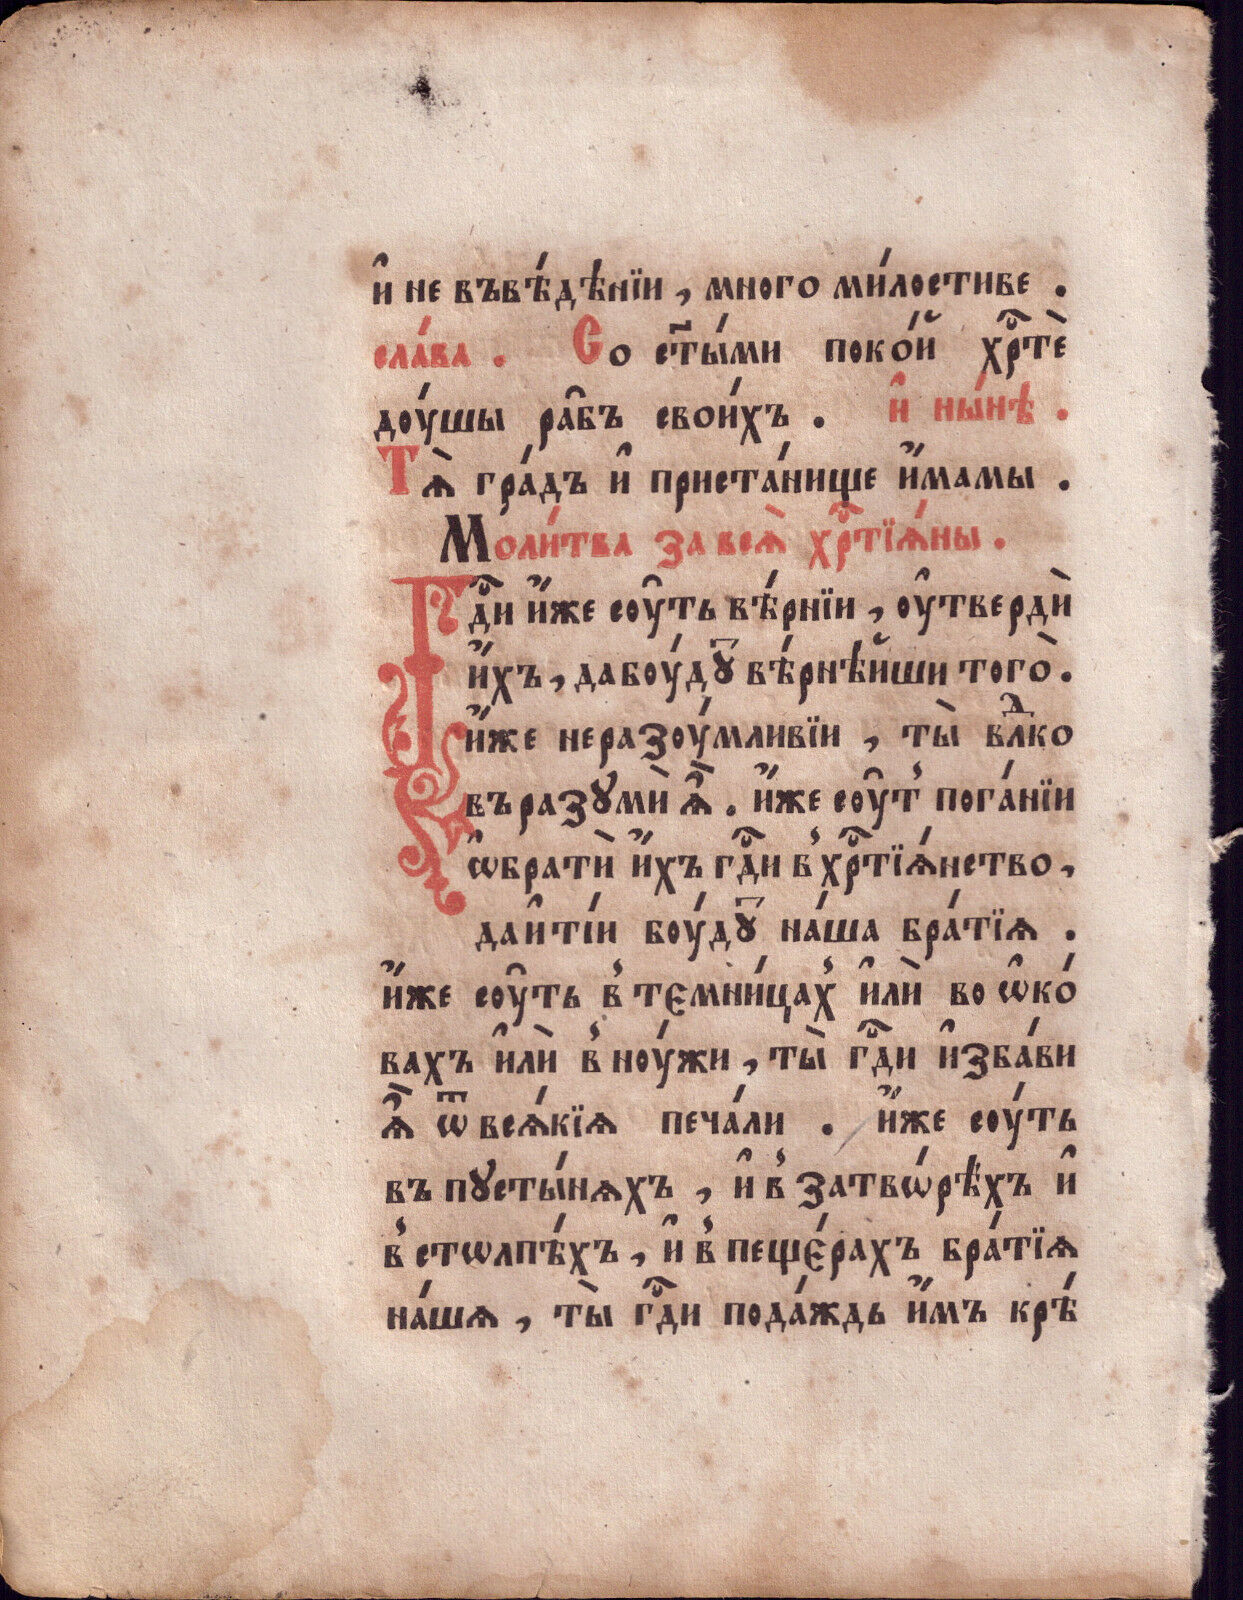 и҆ не въвѣ́дѣнїи, много ми́лостиве.
сла́ва. Со ст҃ы́ми поко́й хрⷭ҇тѐ
доу́шы ра̑бъ свои́хъ. и҆ ны́нѣ.
Тѧ̀ гра́дъ и҆ приста́нище и҆́мамы.
Моли́тва за всѧ̀ хрⷭ҇тїѧ́ны.
Гдⷭ҇и и҆́же соу̑ть вѣ́рнїи, оу҆твердѝ
и҆́хъ, да боу́дꙋ̅ вѣ́рнѣйши того̀.
и҆́же неразоу́мливїи, ты̀ влⷣко
въразꙋмѝ ѧ҆̀. и҆́же соу̑т̾ пога́нїи
ѡ҆братѝ и҆́хъ гдⷭ҇и в̾ хрⷭ҇тїѧ́нство,
да и҆ ті́и боу́дꙋ̅ на́ша бра́тїѧ.
и҆́же соу̑ть в̾ темни́цах̾ и҆лѝ во ѡ҆ко́
вахъ и҆лѝ в̾ ноу́жи, ты̀ гдⷭ҇и и҆зба́ви
ѧ҆̀ ѿ всѧ́кїѧ печа́ли. и҆́же соу́ть
въ пꙋсты́нѧхъ, и҆ в̾ затвѡ́рѣхъ и҆
в̾ стѡлпѣ́хъ, и҆ в̾ пеще́рахъ бра́тїѧ
на́шѧ, ты̀ гдⷭ҇и пода́ждь и҆́мъ крѣ́